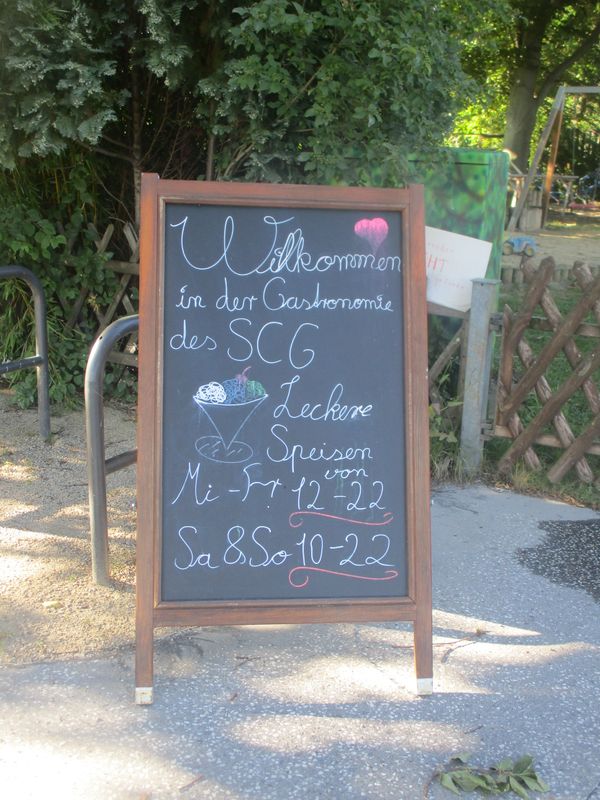 Willkommen
in der Gastronomie
des SCG
Leckere
Speisen
von
Mi-Fr 12-22
Sa & So 10-22